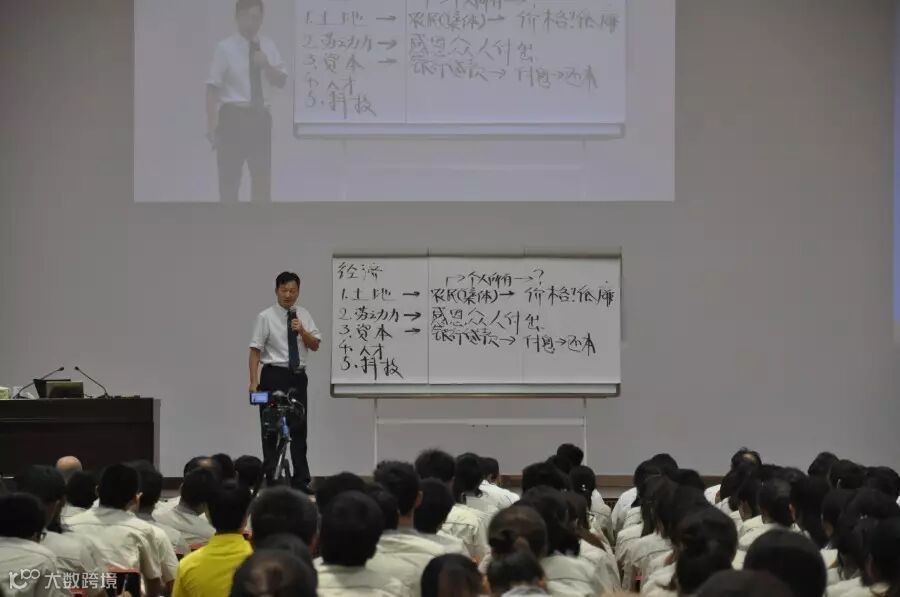 1.土地 → 农民(集体)→ 价格!低廉
2.劳动力 → 感恩众人付出
3.资本 → 银行贷款→付息→还本
4.人才
5.科技
经济
→个人所有→?
1.土地 → 农民(集体)→ 价格!低廉
2.劳动力 → 感恩众人付出
3.资本 → 银行贷款→付息→还本
4.人才
5.科技
大数跨境